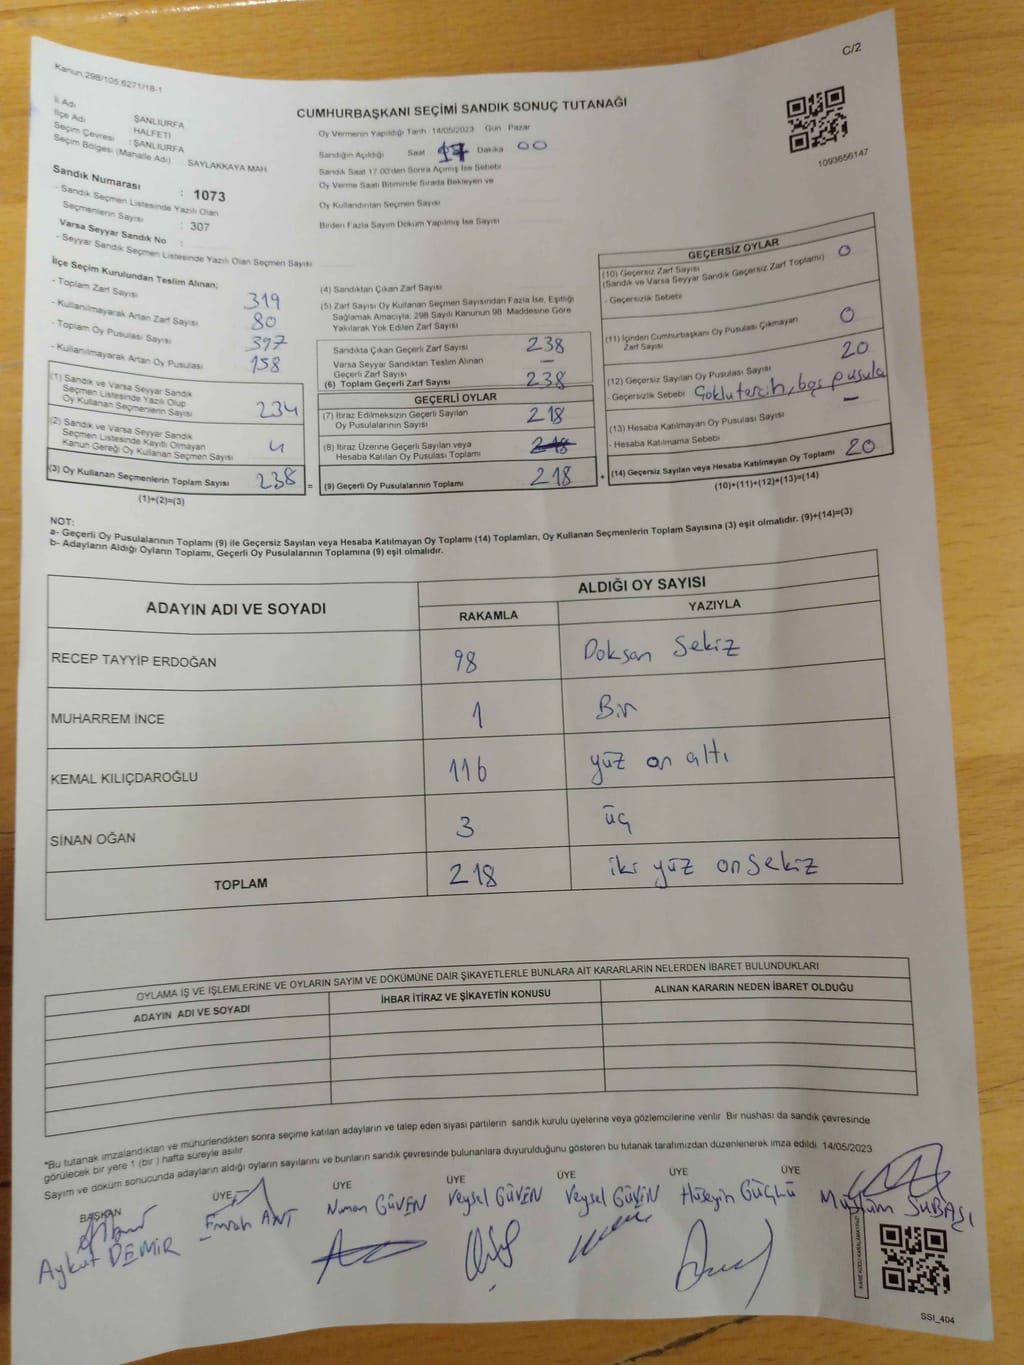 C/2
Kanun,298/105.6271/18-1
CUMHURBAŞKANI SEÇİMİ SANDIK SONUÇ TUTANAĞI
İl Adı ŞANLIURFA
İlçe Adı HALFETİ
Seçim Çevresi : ŞANLIURFA
Seçim Bölgesi (Mahalle Adı) SAYLAKKAYA MAH
Oy Vermenin Yapıldığı Tarih 14/05/2023 Gün Pazar
Sandığın Açıldığı Saat 17 Dakika 00
Sandık Saat 17.00'den Sonra Açılmış İse Sebebi
Oy Verme Saati Bitiminde Sırada Bekleyen ve
Oy Kullandırılan Seçmen Sayısı
Birden Fazla Sayım Döküm Yapılmış İse Sayısı
1093656147
Sandık Numarası : 1073
- Sandık Seçmen Listesinde Yazılı Olan
Seçmenlerin Sayısı : 307
Varsa Seyyar Sandık No :
- Seyyar Sandık Seçmen Listesinde Yazılı Olan Seçmen Sayısı
İlçe Seçim Kurulundan Teslim Alınan;
- Toplam Zarf Sayısı 319
- Kullanılmayarak Artan Zarf Sayısı 80
- Toplam Oy Pusulası Sayısı 397
- Kullanılmayarak Artan Oy Pusulası 158
(1) Sandık ve Varsa Seyyar Sandık
Seçmen Listesinde Yazılı Olup
Oy Kullanan Seçmenlerin Sayısı 234
(2) Sandık ve Varsa Seyyar Sandık
Seçmen Listesinde Kayıtlı Olmayan
Kanun Gereği Oy Kullanan Seçmen Sayısı 4
(3) Oy Kullanan Seçmenlerin Toplam Sayısı 238 =
(1)+(2)=(3)
(4) Sandıktan Çıkan Zarf Sayısı
(5) Zarf Sayısı Oy Kullanan Seçmen Sayısından Fazla İse, Eşitliği
Sağlamak Amacıyla, 298 Sayılı Kanunun 98. Maddesine Göre
Yakılarak Yok Edilen Zarf Sayısı
Sandıkta Çıkan Geçerli Zarf Sayısı 238
Varsa Seyyar Sandıktan Teslim Alınan
Geçerli Zarf Sayısı —
(6) Toplam Geçerli Zarf Sayısı 238
GEÇERLİ OYLAR
(7) İtiraz Edilmeksizin Geçerli Sayılan
Oy Pusulalarının Sayısı 218
(8) İtiraz Üzerine Geçerli Sayılan veya
Hesaba Katılan Oy Pusulası Toplamı 218
(9) Geçerli Oy Pusulalarının Toplamı 218 +
GEÇERSİZ OYLAR
(10) Geçersiz Zarf Sayısı
(Sandık ve Varsa Seyyar Sandık Geçersiz Zarf Toplamı) 0
- Geçersizlik Sebebi
(11) İçinden Cumhurbaşkanı Oy Pusulası Çıkmayan
Zarf Sayısı 0
(12) Geçersiz Sayılan Oy Pusulası Sayısı 20
- Geçersizlik Sebebi Çoklu tercih, boş pusula
(13) Hesaba Katılmayan Oy Pusulası Sayısı —
- Hesaba Katılmama Sebebi
(14) Geçersiz Sayılan veya Hesaba Katılmayan Oy Toplamı 20
(10)+(11)+(12)+(13)=(14)
NOT:
a- Geçerli Oy Pusulalarının Toplamı (9) ile Geçersiz Sayılan veya Hesaba Katılmayan Oy Toplamı (14) Toplamları, Oy Kullanan Seçmenlerin Toplam Sayısına (3) eşit olmalıdır. (9)+(14)=(3)
b- Adayların Aldığı Oyların Toplamı, Geçerli Oy Pusulalarının Toplamına (9) eşit olmalıdır.
ADAYIN ADI VE SOYADI
ALDIĞI OY SAYISI
RAKAMLA YAZIYLA
RECEP TAYYİP ERDOĞAN 98 Doksan Sekiz
MUHARREM İNCE 1 Bir
KEMAL KILIÇDAROĞLU 116 yüz on altı
SİNAN OĞAN 3 üç
TOPLAM 218 iki yüz on sekiz
OYLAMA İŞ VE İŞLEMLERİNE VE OYLARIN SAYIM VE DÖKÜMÜNE DAİR ŞİKAYETLERLE BUNLARA AİT KARARLARIN NELERDEN İBARET BULUNDUKLARI
ADAYIN ADI VE SOYADI İHBAR İTİRAZ VE ŞİKAYETİN KONUSU ALINAN KARARIN NEDEN İBARET OLDUĞU
*Bu tutanak imzalandıktan ve mühürlendikten sonra seçime katılan adayların ve talep eden siyasi partilerin sandık kurulu üyelerine veya gözlemcilerine verilir. Bir nüshası da sandık çevresinde
görülecek bir yere 1 (bir) hafta süreyle asılır.
Sayım ve döküm sonucunda adayların aldığı oyların sayılarını ve bunların sandık çevresinde bulunanlara duyurulduğunu gösteren bu tutanak tarafımızdan düzenlenerek imza edildi. 14/05/2023
BAŞKAN ÜYE ÜYE ÜYE ÜYE ÜYE ÜYE
Aykut DEMİR Emrah ANT Numan GÜVEN Veysel GÜVEN Veysel GÜVEN Hüseyin GÜÇLÜ Müslüm SUBAŞI
KARE KODU KARALAMAYINIZ
SSI_404